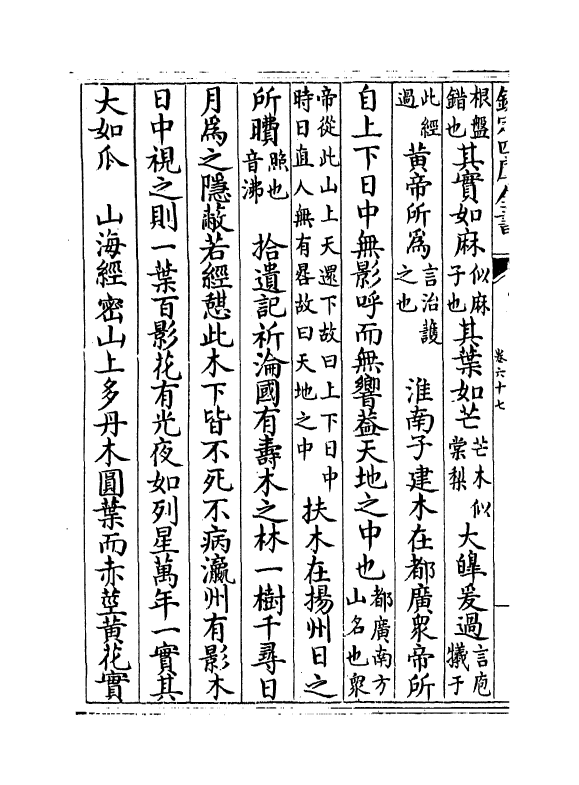 欽定四庫全書
卷六十七
根盤錯也其實如麻似麻子也其葉如芒芒木似棠梨大皥爰過言庖犧于
此經過黃帝所爲言治護之也 淮南子建木在都廣衆帝所
自上下日中無影呼而無響葢天地之中也都廣南方山名也衆
帝從此山上天還下故曰上下日中時日直人無有晷故曰天地之中 扶木在揚州日之
所曊照也音沸 拾遺記祈淪國有壽木之林一樹千尋日
月爲之隱蔽若經憇此木下皆不死不病瀛州有影木
日中視之則一葉百影花有光夜如列星萬年一實其
大如瓜 山海經密山上多丹木圓葉而赤莖黃花實